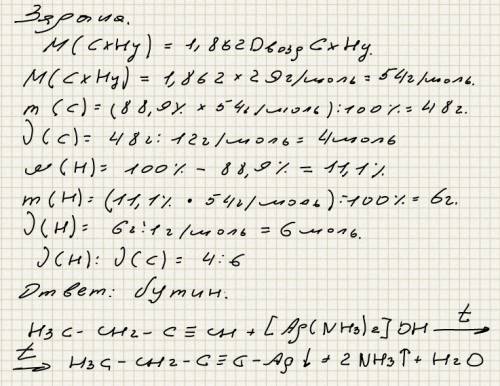 Задача.
M(CxHy) = 1,862Dвозд CxHy.
M(CxHy) = 1,862 × 29г/моль = 54г/моль.
m(C) = (88,9% × 54г/моль):100% = 48г.
ν(C) = 48г : 12г/моль = 4моль
ω(H) = 100% - 88,9% = 11,1%
m(H) = (11,1% · 54г/моль):100% = 6г.
ν(H) = 6г:1г/моль = 6моль.
ν(H):ν(C) = 4:6
Ответ: бутин.
H3C-CH2-C≡CH + [Ag(NH3)2]OH t→
t→ H3C-CH2-C≡C-Ag↓ + 2NH3↑ + H2O